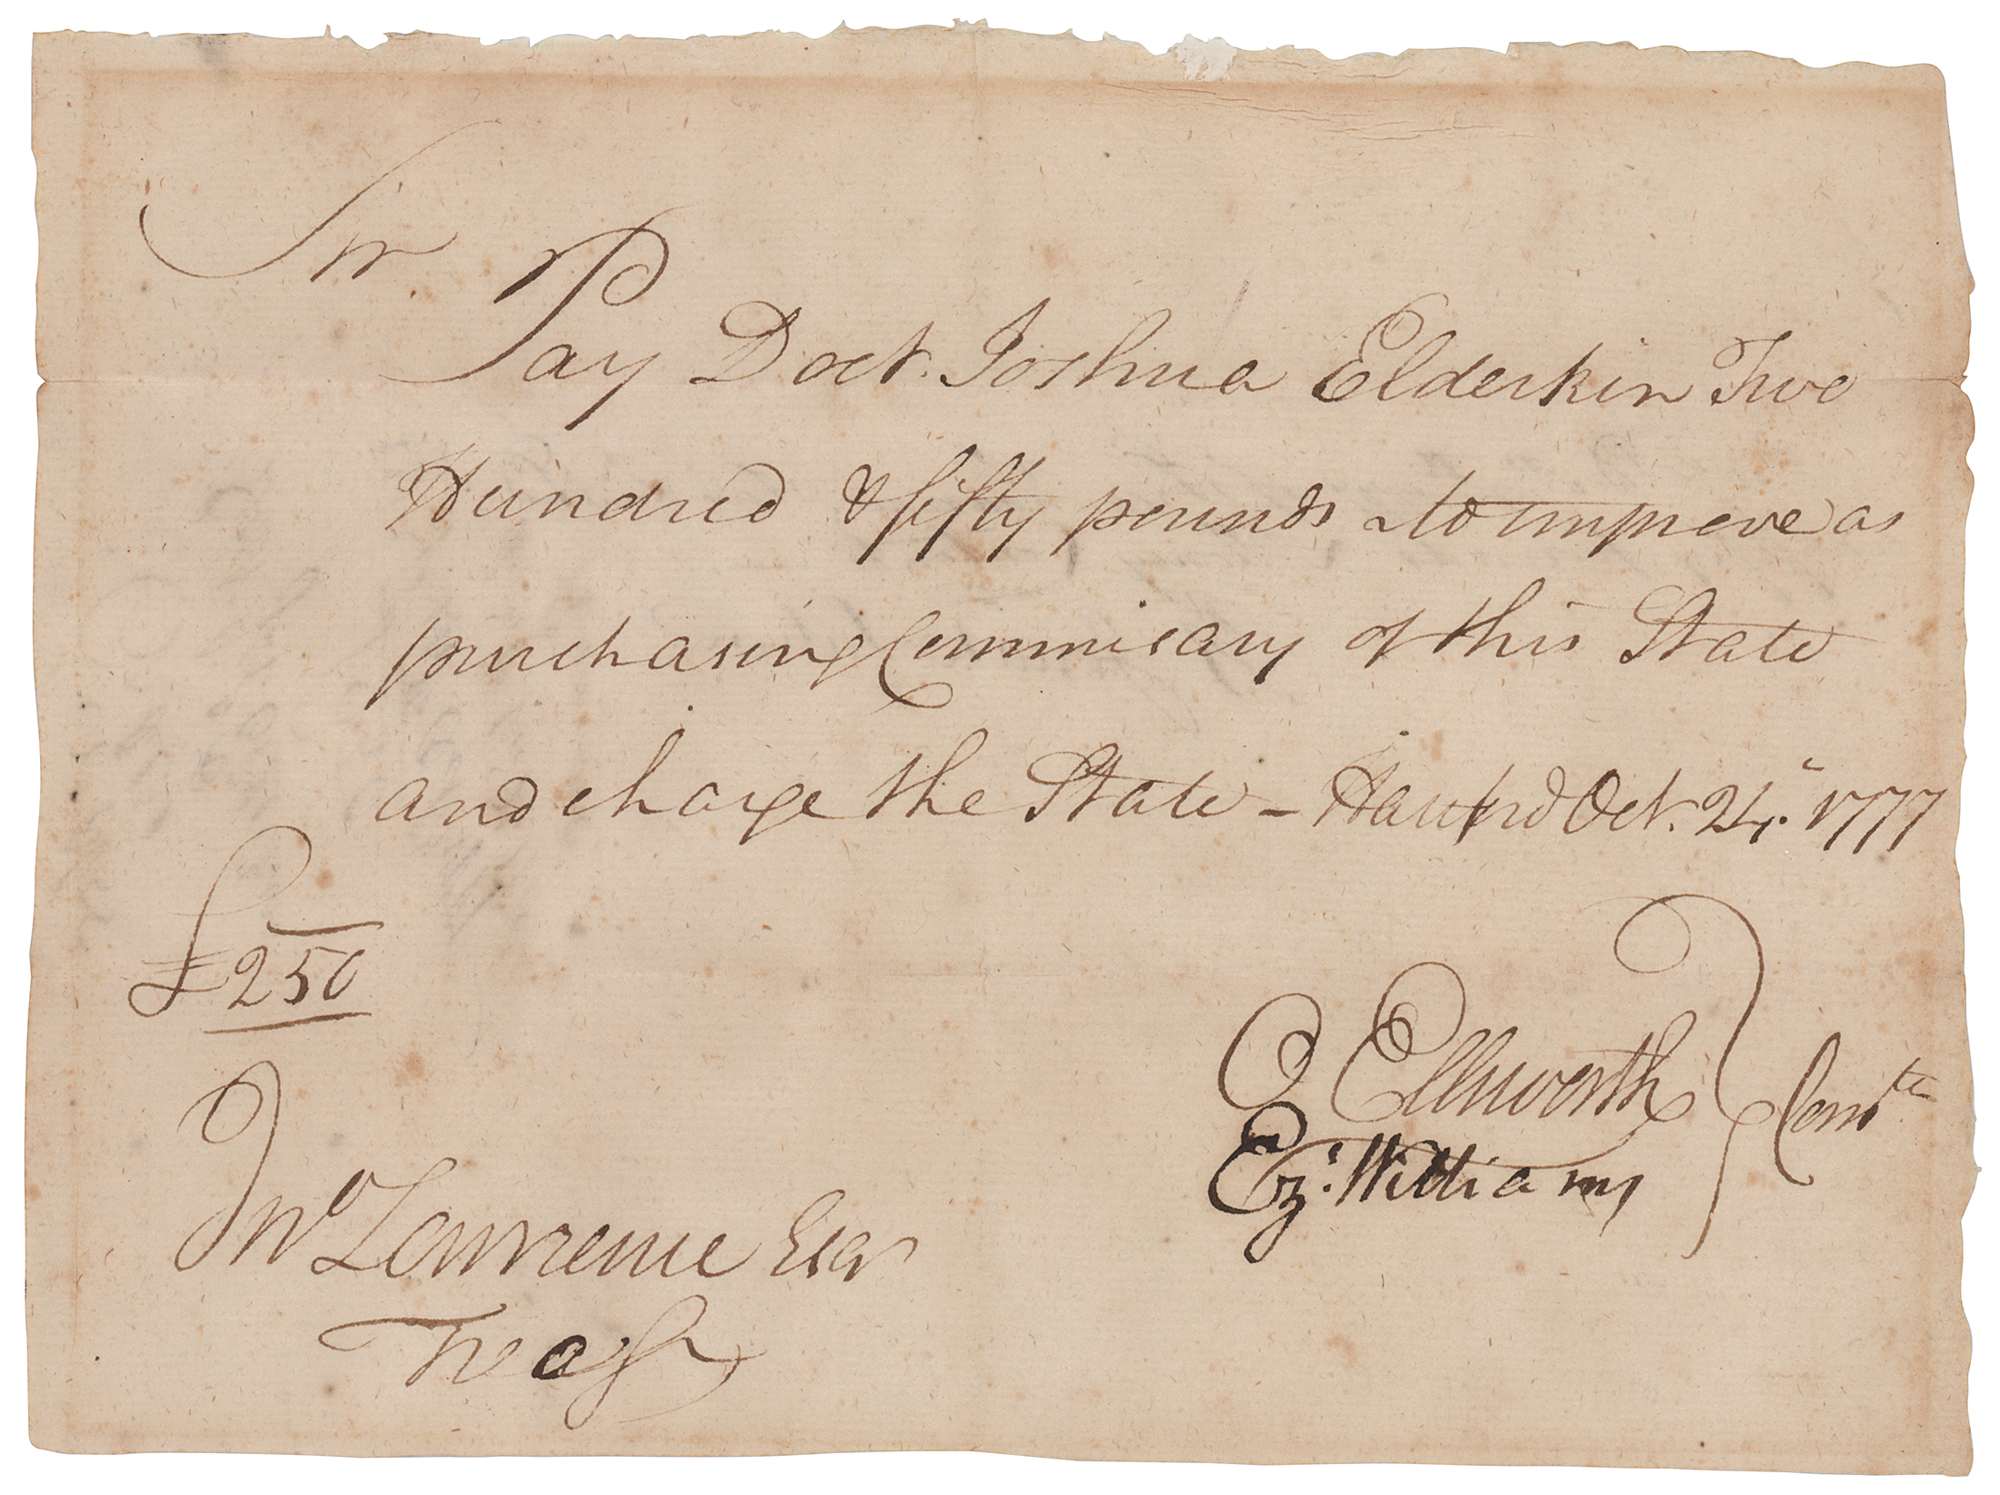 Sir.
Pay Doct. Joshua Elderkin Two
Hundred & fifty pounds to improve as
purchasing Commisary of this State
and charge the State – Hartford Oct. 24. 1777
£250
O Ellsworth
Ezl. Williams
Comtee
Jno Lawrence Esqr
Treasr